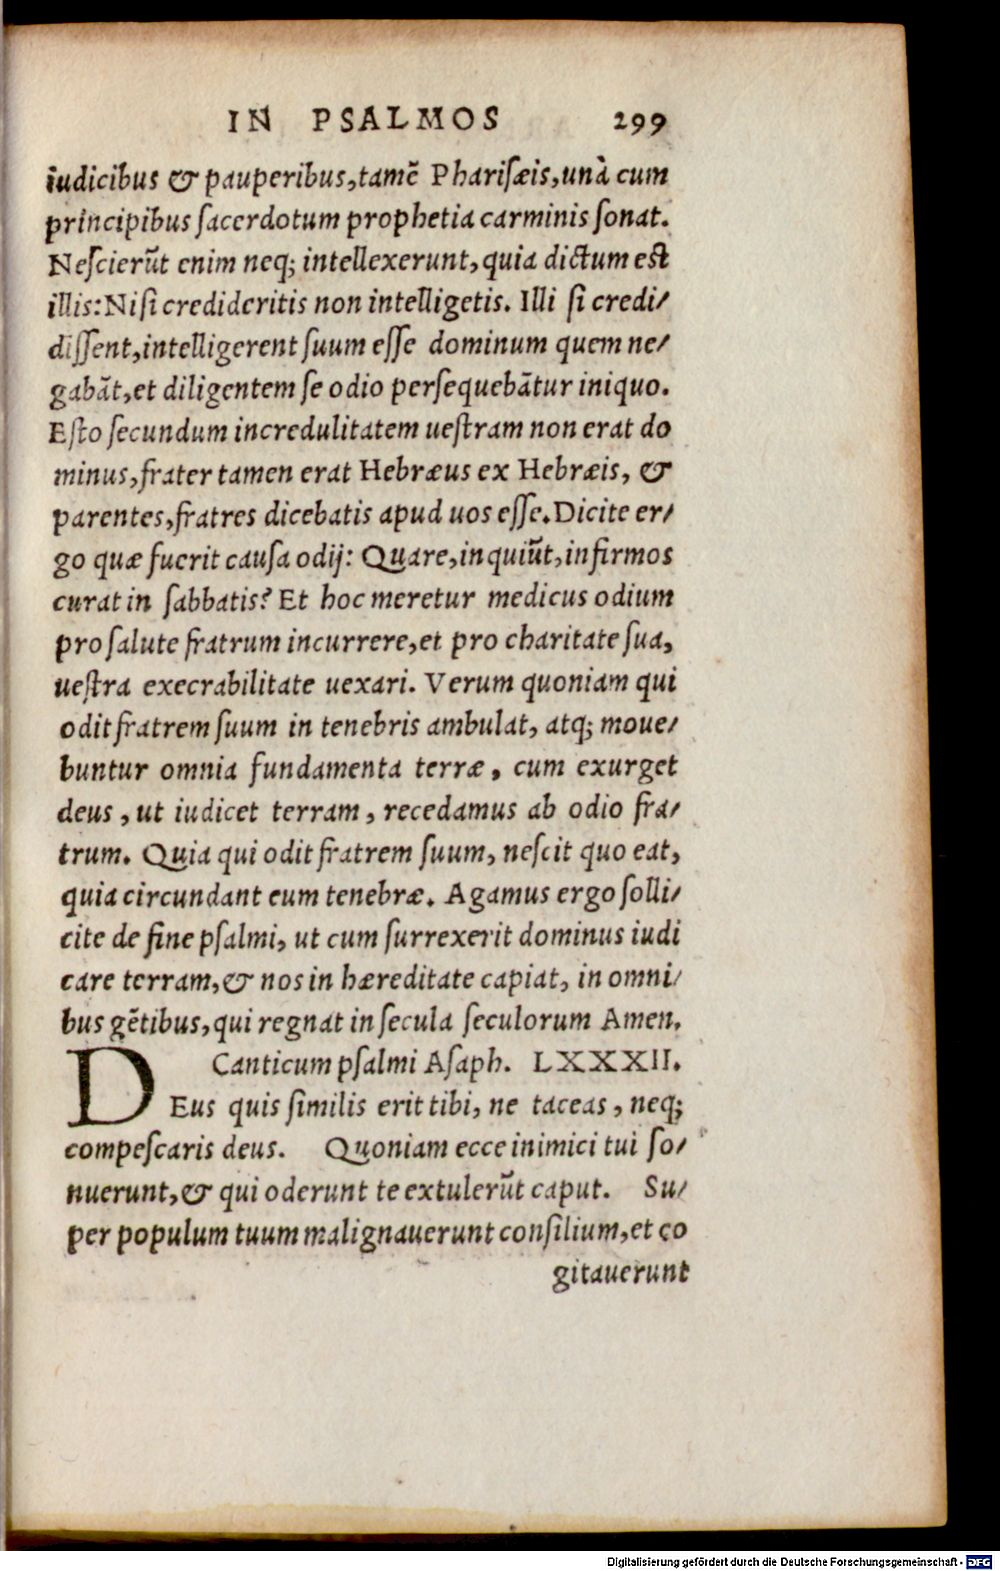 IN PSALMOS 299
iudicibus & pauperibus,tamē Pharisæis,unà cum
principibus ſacerdotum prophetia carminis ſonat.
Neſcierūt enim neq; intellexerunt,quia dictum est
illis:Niſi credideritis non intelligetis. Illi ſi credi/
diſſent,intelligerent ſuum eſſe dominum quem ne/
gabāt,et diligentem ſe odio perſequebātur iniquo.
Eſto ſecundum incredulitatem ueſtram non erat do
minus,frater tamen erat Hebræus ex Hebræis, &
parentes,fratres dicebatis apud uos eſſe.Dicite er/
go quæ fuerit cauſa odij: Quare,inquiūt,infirmos
curat in ſabbatis? Et hoc meretur medicus odium
pro ſalute fratrum incurrere,et pro charitate ſua,
ueſtra execrabilitate uexari. Verum quoniam qui
odit fratrem ſuum in tenebris ambulat, atq; moue/
buntur omnia fundamenta terræ, cum exurget
deus, ut iudicet terram, recedamus ab odio fra/
trum. Quia qui odit fratrem ſuum, neſcit quo eat,
quia circundant eum tenebræ. Agamus ergo ſolli/
cite de fine pſalmi, ut cum ſurrexerit dominus iudi
care terram,& nos in hæreditate capiat, in omni/
bus gētibus,qui regnat in ſecula ſeculorum Amen.
Canticum pſalmi Aſaph. LXXXII.
DEus quis ſimilis erit tibi, ne taceas, neq;
compeſcaris deus. Quoniam ecce inimici tui ſo/
nuerunt,& qui oderunt te extulerūt caput. Su/
per populum tuum malignauerunt conſilium,et co
gitauerunt
Digitalisierung gefördert durch die Deutsche Forschungsgemeinschaft - DFG